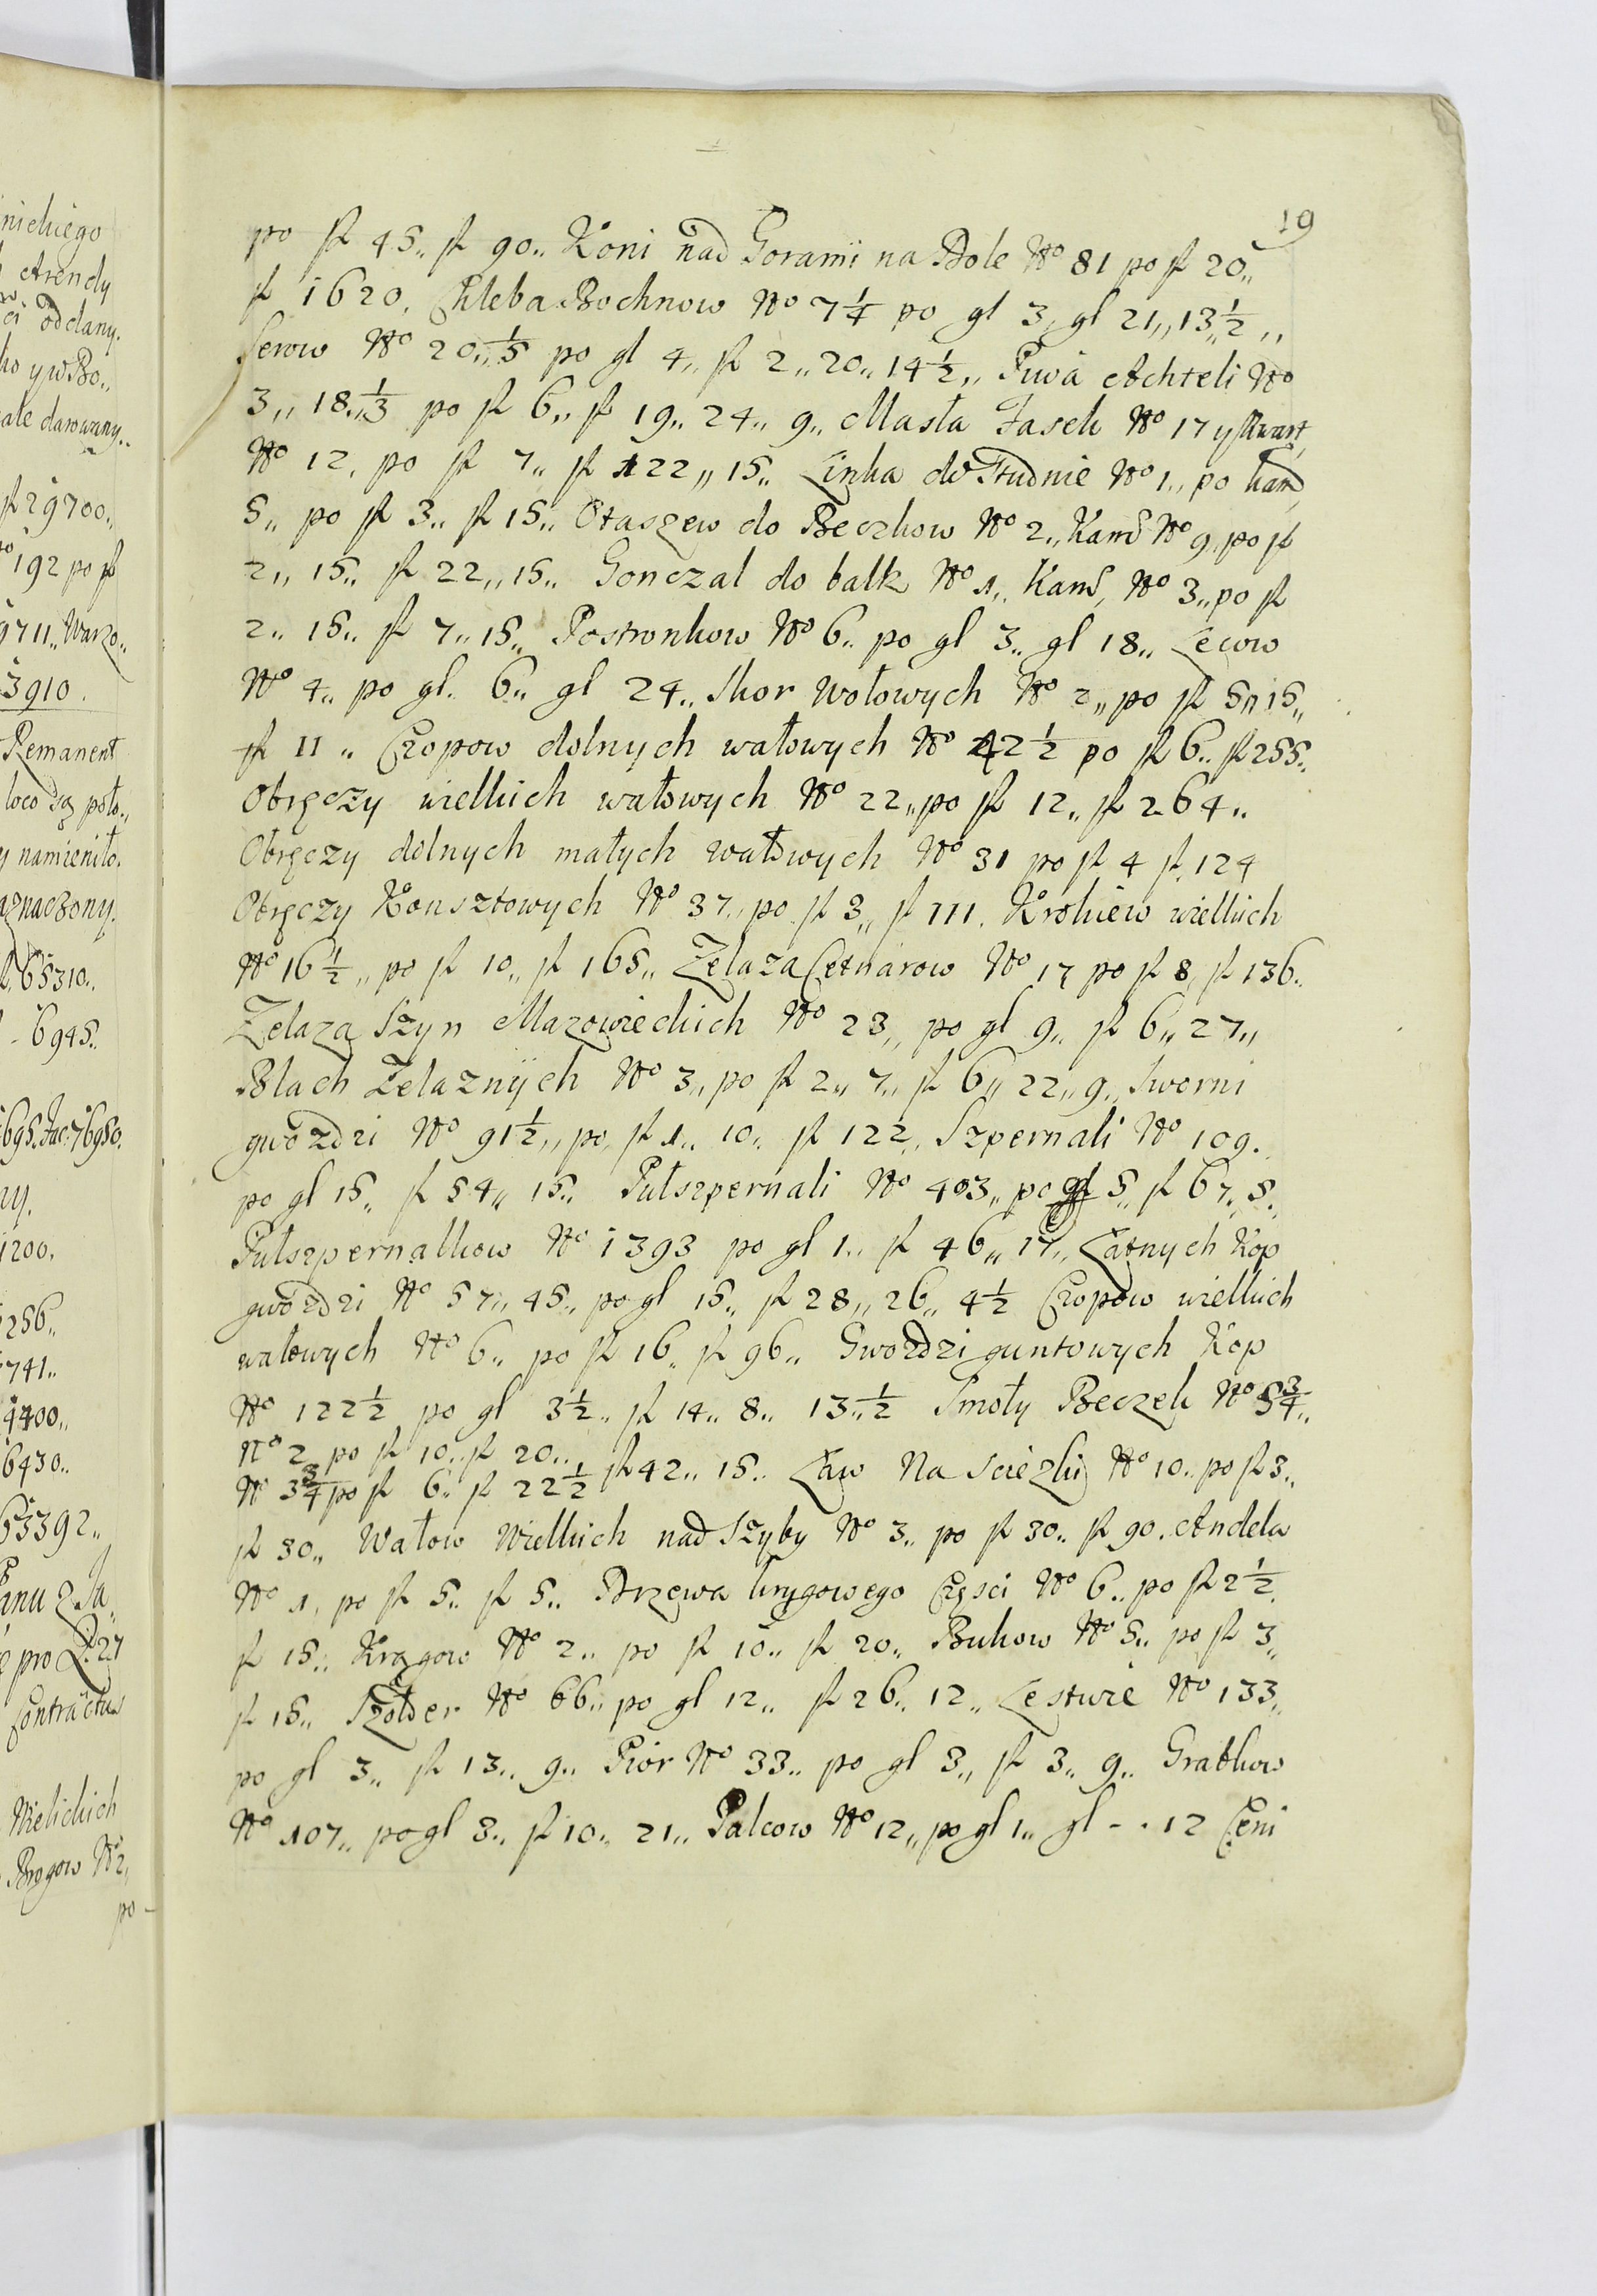 nickiego
Arendy
ci oddany.
ko y w Bo„
ale darowany„
fl 29700„
No 192 po fl
9711„ Warzo„
3910.
Remanent
loco są poło„
y namieniło.
aznaczony.
fl 65310„
6945„
695. Fac: 76950.
ny.
1200.
256„
741„
4400„
6430„
63392„
anu z Ja
e pro L. 27
Contractus
Wielickich
Brogow No 2,
po -
19
po fl 45„ fl 90„ Koni nad Gorami na Dole No 81 po fl 20„
fl 1620. Chleba Bochnow No 7 1/4 po gl 3, gl 21„ 13 1/2„
Serow No 20„ 1/5 po gl 4„ fl 2„ 20„ 14 1/2„ Piwa Achteli No
3„ 18„ 1/3 po fl 6„ fl 19„ 24„ 9„ Masła Fasek No 17 y kwart
No 12, po fl 7„ fl 122„ 15„ Linka do Studnie No 1„ po kam
5„ po fl 3„ fl 15„ Otaszew do Beczkow No 2„ Kam No 9, po fl
2„ 15„ fl 22„ 15„ Gonczal do balk No 1„ Kam, No 3„ po fl
2„ 15„ fl 7„ 15„ Postronkow No 6„ po gl 3„ gl 18„ Lecow
No 4„ po gl. 6„ gl 24„ Skor Wołowych No 2„ po fl 5„ 15„
fl 11„ Czopow dolnych wałowych No 42 1/2 po fl 6„ fl 255„
Obręczy wielkich wałowych No 22„ po fl 12„ fl 264„
Obręczy dolnych małych wałowych No 31 po fl 4 fl 124
Obręczy Konsztowych No 37„ po fl 3„ fl 111. Kroliew wielkich
No 16 1/2„ po fl 10„ fl 165„ Zelaza Cetnarow No 17 po fl 8, fl 136„
Zelaza Szyn Mazowieckich No 23„ po gl 9„ fl 6„ 27„
Blach Zelaznych No 3„ po fl 2„ 7„ fl 6„ 22„ 9„ Sworni
gwozdzi No 91 1/2„ po fl 1„ 10„ fl 122„ Szpernali No 109.
po gl 15„ fl 54„ 15„ Pułszpernali No 403„ po gl 5„ fl 67„ 5„
Pułszpernalkow No 1393 po gl 1„ fl 46„ 17„ Łatnych Kop
gwozdzi No 57„ 45„ po gl 15„ fl 28„ 26„ 4 1/2 Czopow wielkich
wałowych No 6„ po fl 16„ fl 96„ Gwozdzi guntowych Kop
No 122 1/2 po gl 3 1/2„ fl 14„ 8„ 13„ 1/2 Smoły Beczek No 5 3/4„
No 2 po fl 10„ fl 20„
No 3 3/4 po fl 6„ fl 22 1/2 fl 42„ 15„ Law Na Sciezki No 10„ po fl 3„
fl 30„ Wałow Wielkich nad Szyby No 3„ po fl 30„ fl 90. Andela
No 1, po fl 5„ fl 5„ Drzewa krygowego Częsci No 6„ po fl 2 1/2
fl 15„ Krągow No 2„ po fl 10„ fl 20„ Bukow No 5„ po fl 3„
fl 15„ Szołder No 66„ po gl 12„ fl 26„ 12„ Lestwie No 133„
po gl 3„ fl 13„ 9„ Piór No 33„ po gl 3„ fl 3„ 9„ Grabkow
No 107„ po gl 3„ fl 10„ 21„ Palcow No 12„ po gl 1„ gl - . 12 Ceni